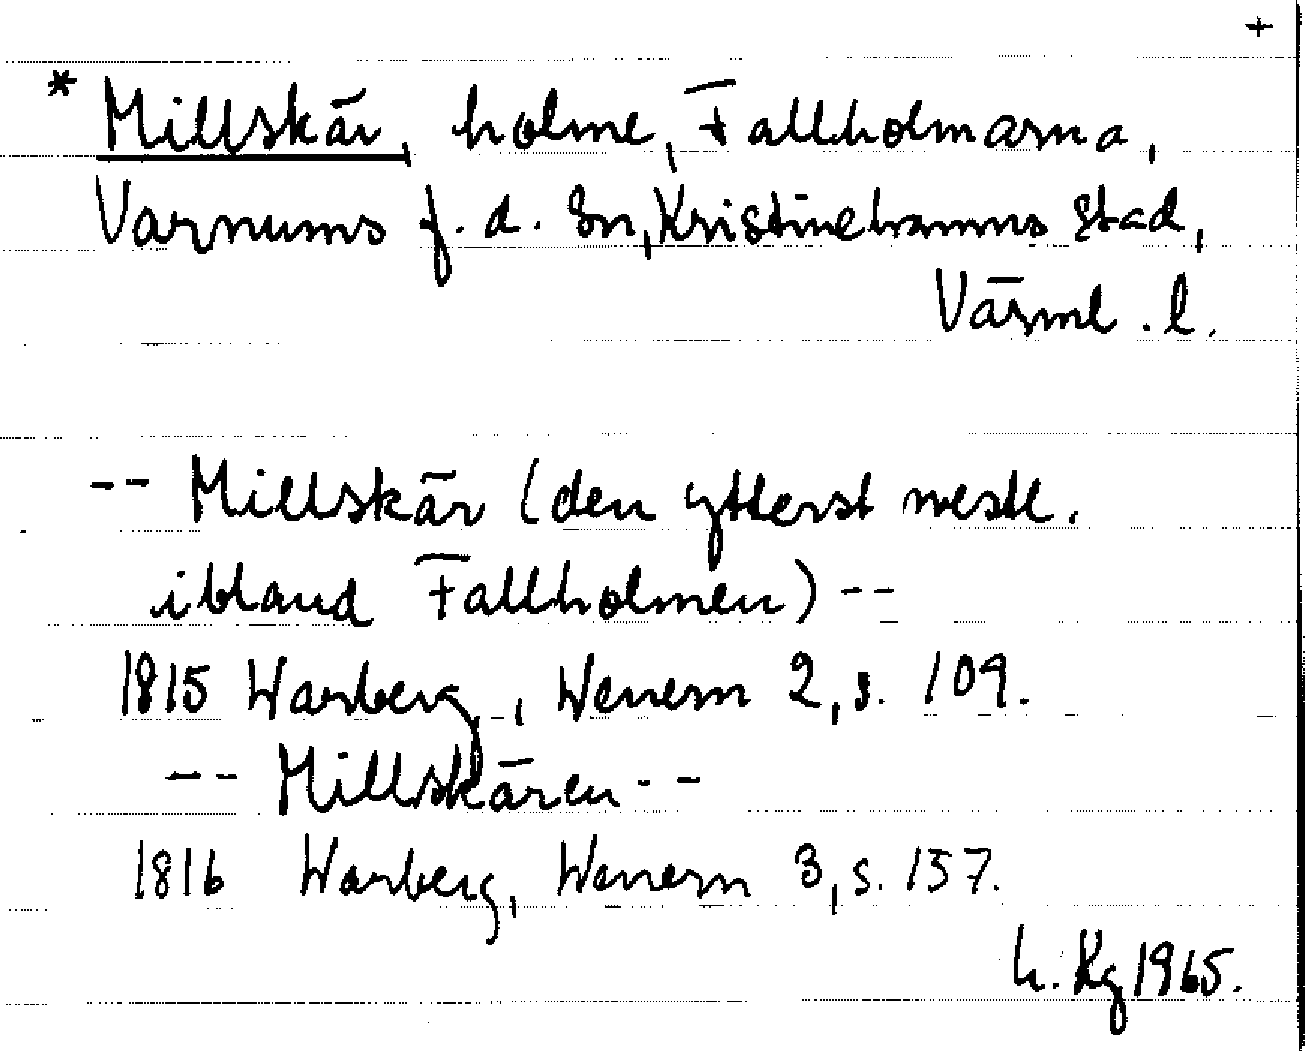 +
* Millskär, holme, Fallholmarna,
Varnums f.d. sn, Kristinehamns stad,
Värml. l.
-- Millskär (den ytterst westl.
ibland Fallholmen) --
1815 Warberg, Wenern 2, s. 109.
-- Millskären --
1816 Warberg, Wenern 3, s. 157.
h. Kg 1965.